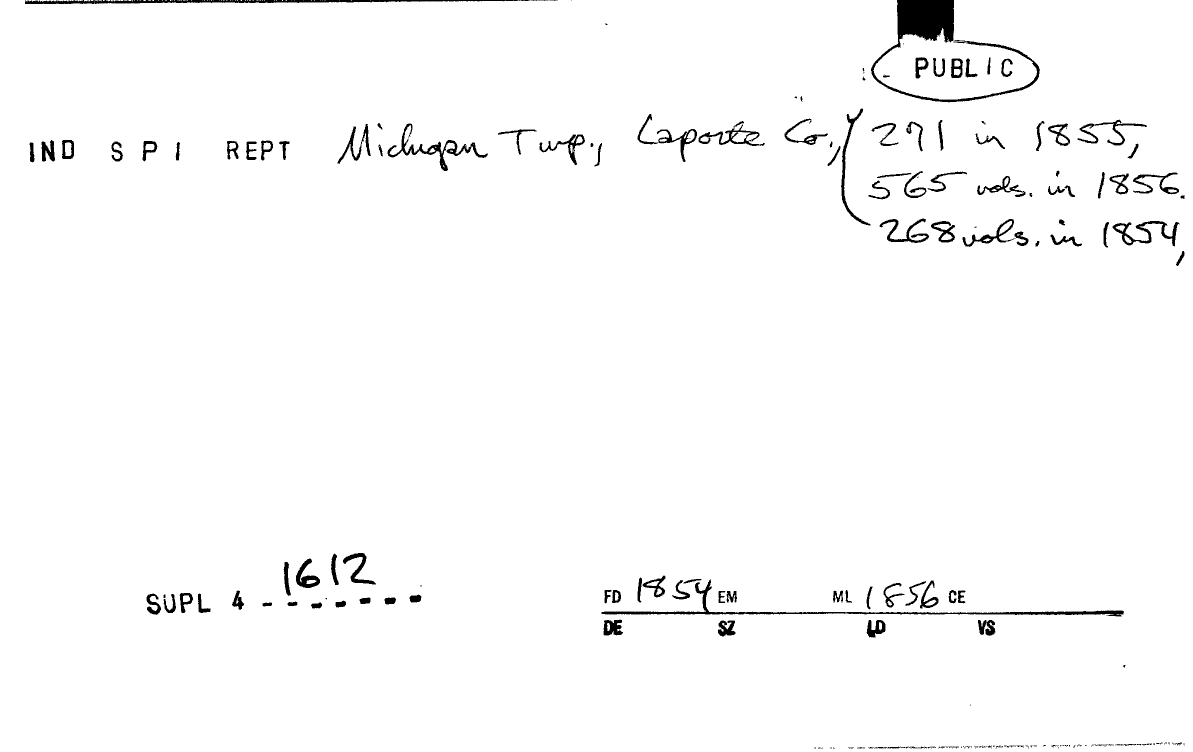 PUBLIC
IND S P I REPT Michigan Twp., Laporte Co., 271 in 1855,
565 vols. in 1856.
268 vols. in 1854,
1612
SUPL 4 - - - - - - -
FD 1854 EM ML 1856 CE
DE SZ LD VS